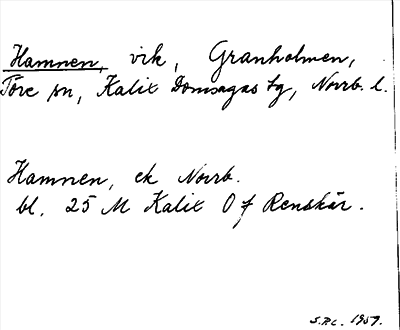 Hamnen, vik, Granholmen,
Töre sn, Kalix Domsagas tg, Norrb. l.
Hamnen, ek Norrb.
bl. 25 M Kalix O f Renskär.
S.P.L. 1959.